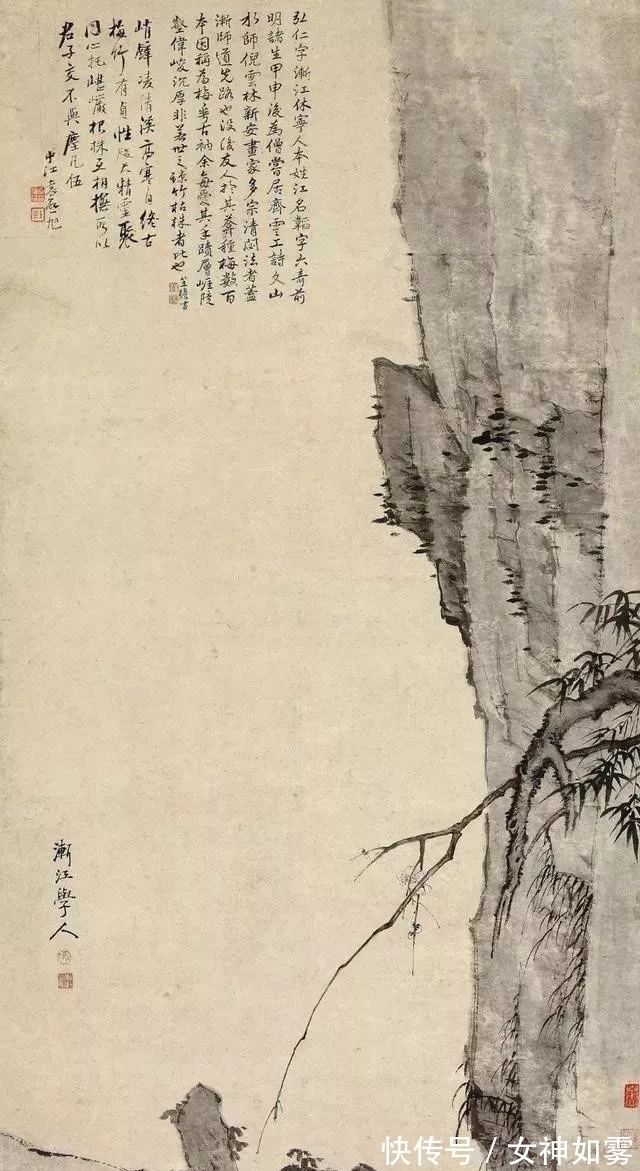 弘仁字漸江休寧人本姓江名韜字六奇前
明諸生甲申後為僧嘗居齊雲工詩文山
水師倪雲林新安畫家多宗清閟法者蓋
漸師道先路也沒後友人於其墓種梅數百
本因稱為梅華古衲余每愛其手蹟層崖陡
壑偉峻沉厚非若世之疎竹枯株者比也
峭壁凌清溪高寒自終古
梅竹有貞性 天精靈聚
同心托嵁巖根株互相撫所以
君子交不與塵凡伍
中江袁啟旭
漸江學人
快传号／女神如雾